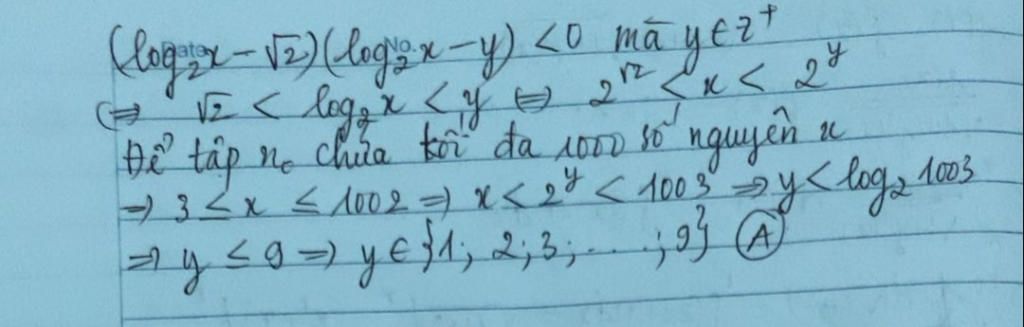 (log₂x - √2)(log₂x - y) < 0 mà y ∈ Z⁺
⇔ √2 < log₂x < y ⇔ 2^√2 < x < 2^y
Để tập n₀ chứa tối đa 1000 số nguyên x
⇒ 3 ≤ x ≤ 1002 ⇒ x < 2^y < 1003 ⇒ y < log₂1003
⇒ y ≤ 9 ⇒ y ∈ {1; 2; 3; ....; 9} Ⓐ
Date No.